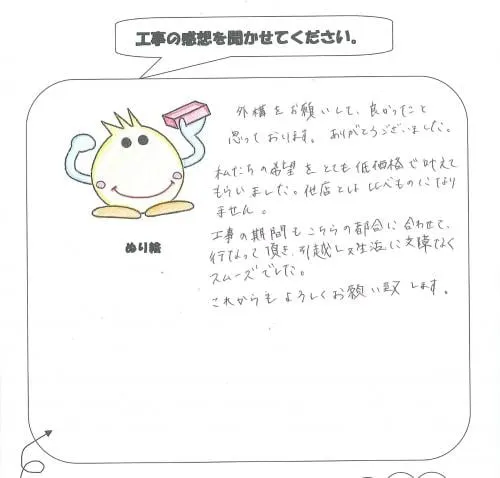 工事の感想を聞かせてください。
外構をお願いして、良かったと
思っております。ありがとうございました。
私たちの希望をとても低価格で叶えて
もらいました。他店とは比べものになり
ません。
工事の期間もこちらの都合に合わせて、
行なって頂き、引越し又生活に支障なく
スムーズでした。
これからもよろしくお願い致します。
ぬり絵